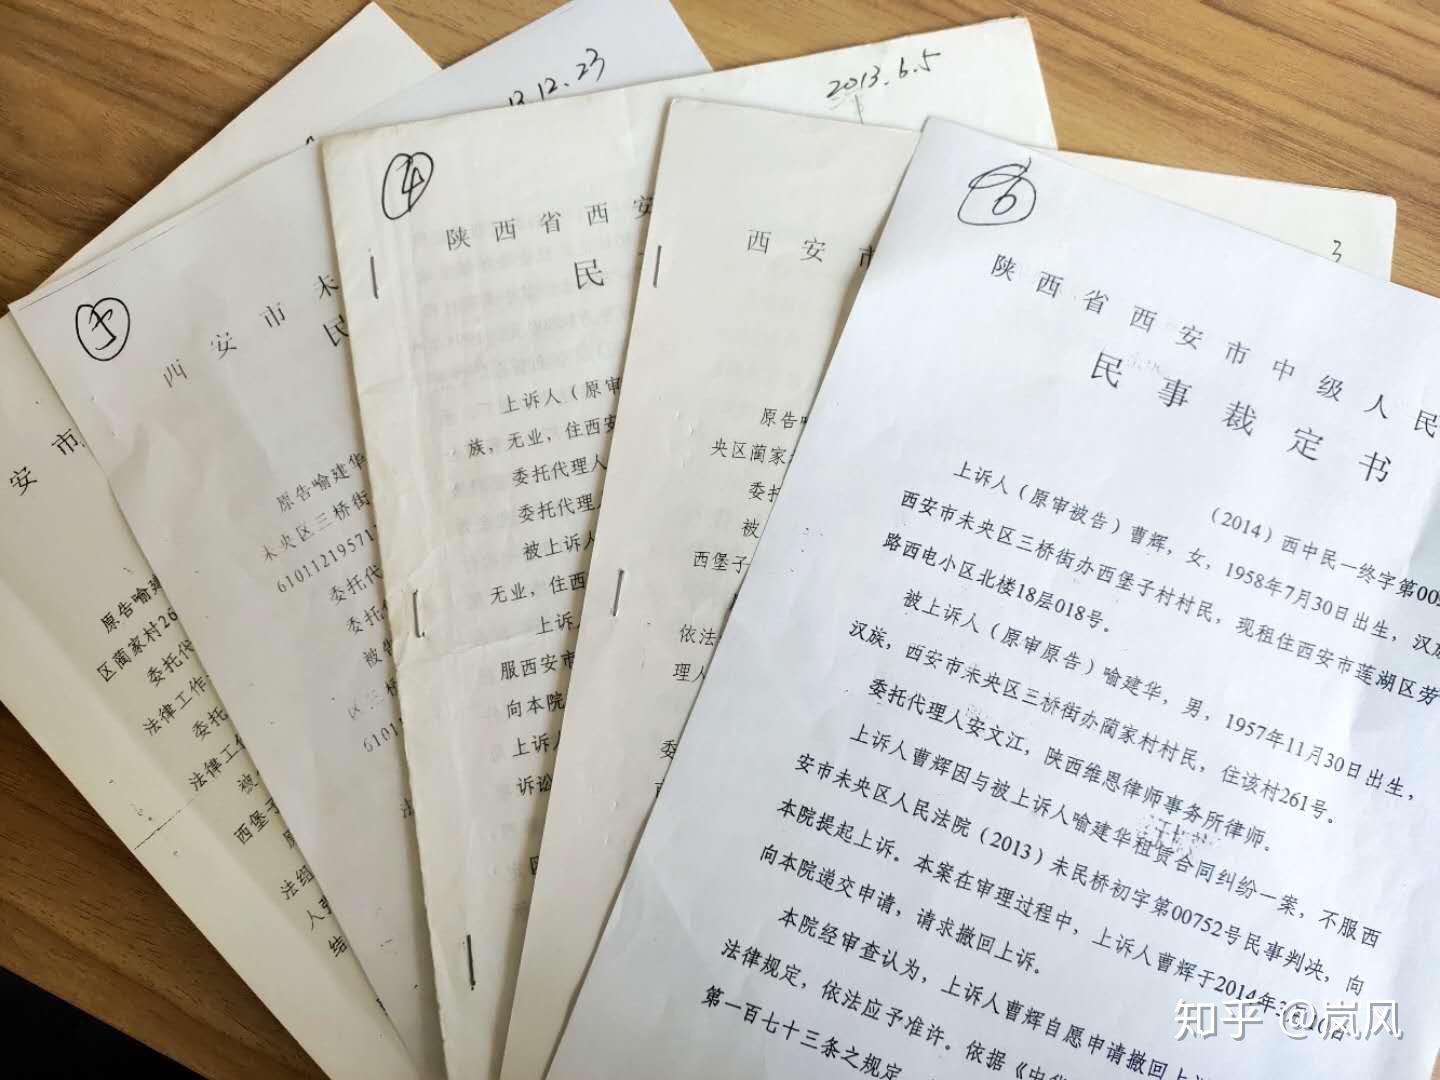 13.12.23
2013.6.5
3
安市
原告喻建
区蔺家村26
委托代
法律工作
委托
法律工作
被
西堡子
法经
人
结
5
西安市未
民
原告喻建华
未央区三桥街
61011219571
委托代
委托
被告
区三桥
61011
法
4
陕西省西安
民
上诉人（原审
族，无业，住西安
委托代理人
委托代理人
被上诉人
无业，住西
上诉
服西安市
向本院
上诉人
诉讼
西安市
原告喻
央区蔺家
委托
被
西堡子
依法
理人
委
6
陕西省西安市中级人民
民事裁定书
（2014）西中民一终字第00
上诉人（原审被告）曹辉，女，1958年7月30日出生，汉族
西安市未央区三桥街办西堡子村村民，现租住西安市莲湖区劳
路西电小区北楼18层018号。
被上诉人（原审原告）喻建华，男，1957年11月30日出生，
汉族，西安市未央区三桥街办蔺家村村民，住该村261号。
委托代理人安文江，陕西维恩律师事务所律师。
上诉人曹辉因与被上诉人喻建华租赁合同纠纷一案，不服西
安市未央区人民法院（2013）未民桥初字第00752号民事判决，向
本院提起上诉。本案在审理过程中，上诉人曹辉于2014年3月20日
向本院递交申请，请求撤回上诉。
本院经审查认为，上诉人曹辉自愿申请撤回上
法律规定，依法应予准许。依据《中华
第一百七十三条之规定
知乎 @岚风